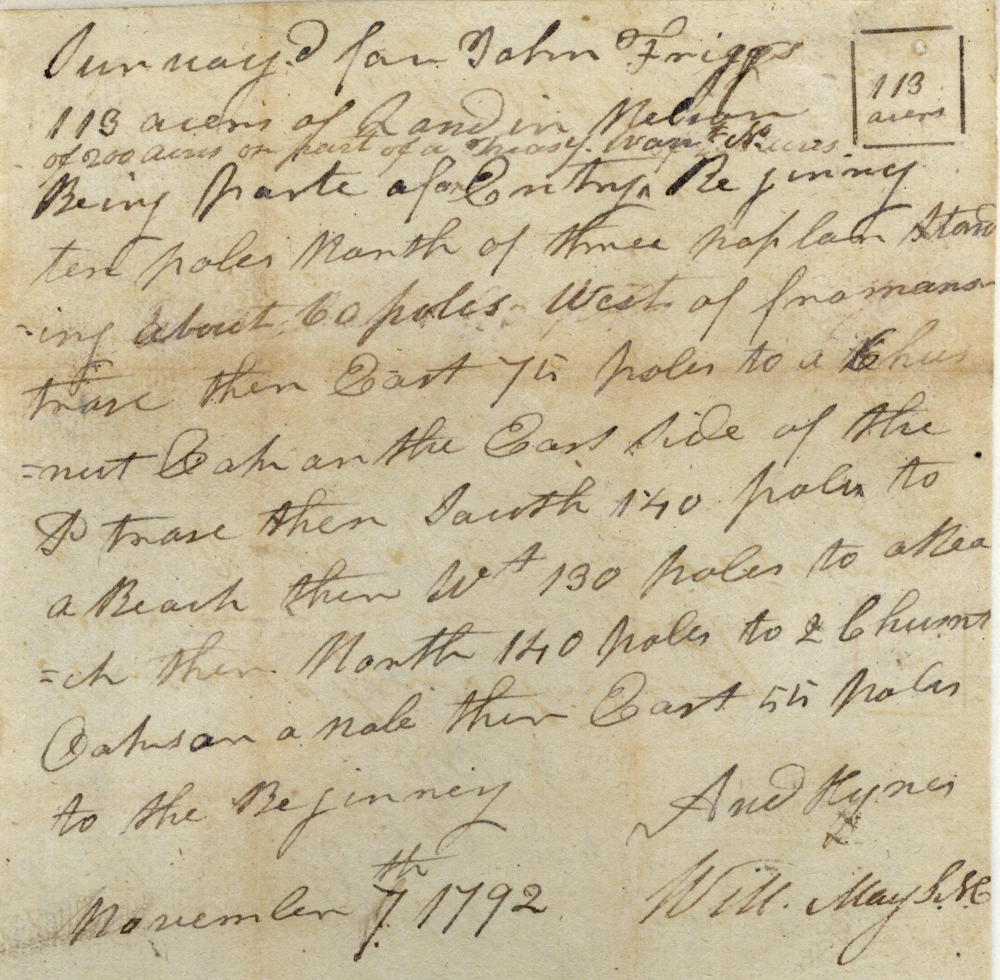 Survay.d for John Friggs
113
acers
113 acers of Land in Nelson
of 200 acres on part of a Treasy. Warrt. No. acres
Being parte of an Entry ^ Be ginney
ten poles North of three poplars Stand
=ing about 60 poles West of fromans
trase then East 75 poles to a Chus
=nut Oak on the East side of the
Sd trase then South 140 poles to
a Beach then Wt 130 poles to a Bea
=ch then North 140 poles to 2 Chusnt
Oaks on a nole then East 55 poles
to the Be ginney
And Hynes
November 7th 1792
Will. May S.N.C